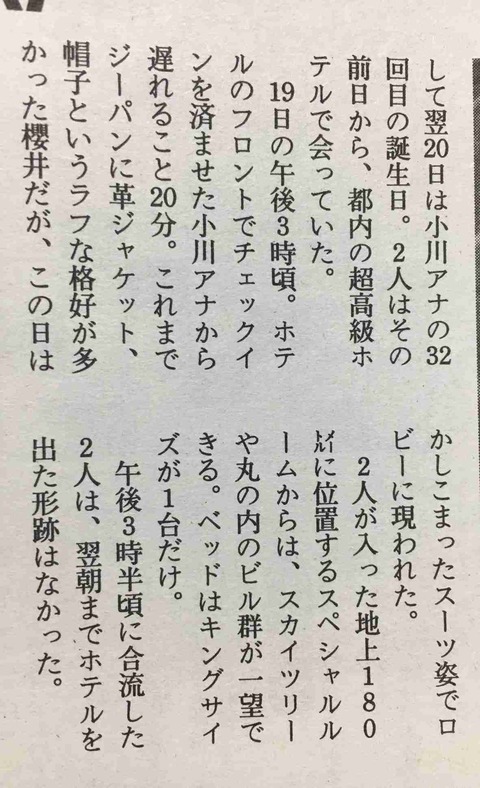 して翌20日は小川アナの32
回目の誕生日。2人はその
前日から、都内の超高級ホ
テルで会っていた。
19日の午後3時頃。ホテ
ルのフロントでチェックイ
ンを済ませた小川アナから
遅れること20分。これまで
ジーパンに革ジャケット、
帽子というラフな格好が多
かった櫻井だが、この日は
かしこまったスーツ姿でロ
ビーに現われた。
2人が入った地上180
メートルに位置するスペシャルル
ームからは、スカイツリー
や丸の内のビル群が一望で
きる。ベッドはキングサイ
ズが1台だけ。
午後3時半頃に合流した
2人は、翌朝までホテルを
出た形跡はなかった。